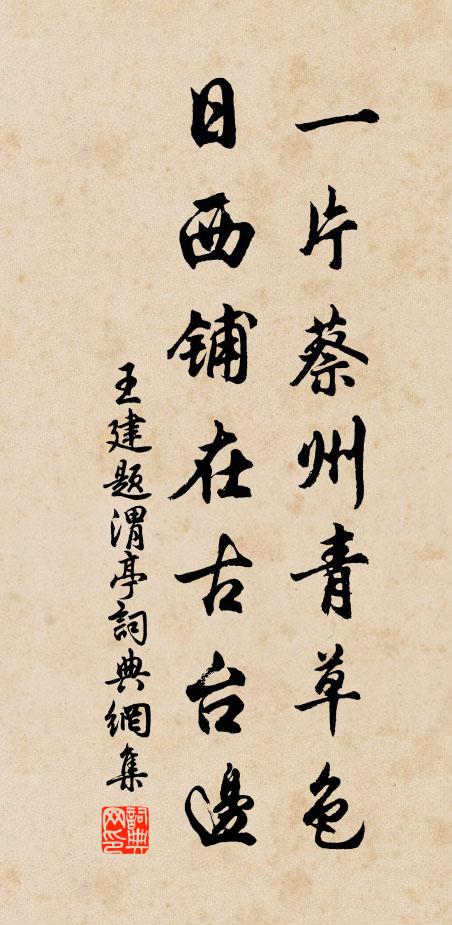 一片蔡州青草色
日西铺在古台邊
王建题渭亭詞典網集
詞典网印